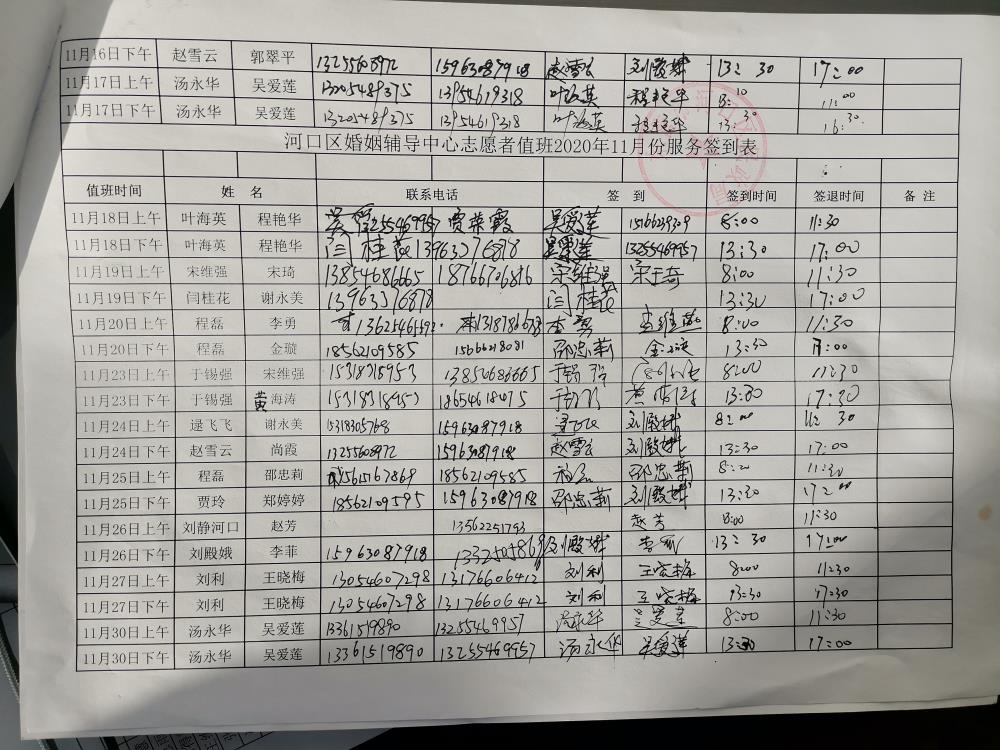 11月16日下午 赵雪云 郭翠平 13255608972 15963087918 赵雪云 刘殿娥 13:30 17:00
11月17日上午 汤永华 吴爱莲 13205489375 13954619318 叶海英 程艳华 8:10 11:00
11月17日下午 汤永华 吴爱莲 13205489375 13954619318 叶海英 程艳华 13:30 16:30
河口区婚姻辅导中心志愿者值班2020年11月份服务签到表
值班时间 姓 名 联系电话 签 到 签到时间 签退时间 备 注
11月18日上午 叶海英 程艳华 吴爱 13255469957 贾荣霞 吴爱莲 15166239309 8:00 11:30
11月18日下午 叶海英 程艳华 闫桂花 13963276878 吴爱莲 13255469957 13:30 17:00
11月19日上午 宋维强 宋琦 13854686665 18766706816 宋维强 宋于琦 8:00 11:30
11月19日下午 闫桂花 谢永美 13963376878 闫桂花 13:30 17:00
11月20日上午 程磊 李勇 13625465593 13181786678 李勇 8:00 11:30
11月20日下午 程磊 金璇 18562109585 15666218081 邵忠莉 金璇 13:30 17:00
11月23日上午 于锡强 宋维强 15318315953 13854683665 于锡强 8:00 11:30
11月23日下午 于锡强 黄海涛 15318318953 18654618075 13:30 17:30
11月24日上午 逯飞飞 谢永美 15318305768 15963087918 刘殿娥 8:00 11:30
11月24日下午 赵雪云 尚霞 13255608972 15963087918 赵雪云 刘殿娥 13:30 17:00
11月25日上午 程磊 邵忠莉 15615167869 18562109585 程磊 邵忠莉 8:20 11:30
11月25日下午 贾玲 郑婷婷 18562109595 15963087918 邵忠莉 刘殿娥 13:30 17:00
11月26日上午 刘静河口 赵芳 13562251793 赵芳 8:00 11:30
11月26日下午 刘殿娥 李菲 15963087918 刘殿娥 李菲 13:30 17:00
11月27日上午 刘利 王晓梅 13054607298 13176606412 刘利 王晓梅 8:00 11:30
11月27日下午 刘利 王晓梅 13054607298 13176606412 刘利 王晓梅 13:30 17:30
11月30日上午 汤永华 吴爱莲 13361519890 13255469957 汤永华 吴爱莲 8:00 11:30
11月30日下午 汤永华 吴爱莲 13361519890 13255469957 汤永华 吴爱莲 13:30 17:00